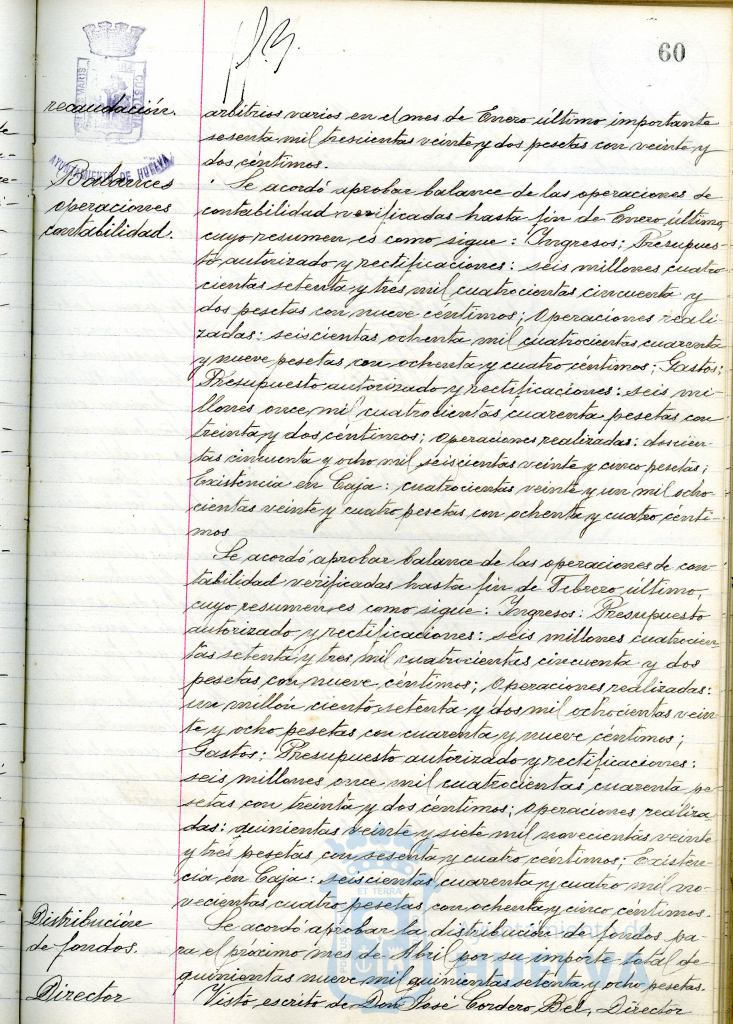 60
recaudación.
arbitrios varios en el mes de Enero último importante
sesenta mil trescientas veinte y dos pesetas con veinte y
dos céntimos.
AYUNTAMIENTO DE HUELVA
Balances
operaciones
contabilidad.
Se acordó aprobar balance de las operaciones de
contabilidad verificadas hasta fin de Enero último,
cuyo resumen es como sigue: Ingresos: Presupues-
to autorizado y rectificaciones: seis millones cuatro-
cientas setenta y tres mil cuatrocientas cincuenta y
dos pesetas con nueve céntimos; Operaciones reali-
zadas: seiscientas ochenta mil cuatrocientas cuarenta
y nueve pesetas con ochenta y cuatro céntimos; Gastos:
Presupuesto autorizado y rectificaciones: seis mi-
llones once mil cuatrocientas cuarenta pesetas con
treinta y dos céntimos; Operaciones realizadas: doscien-
tas cincuenta y ocho mil seiscientas veinte y cinco pesetas;
Existencia en Caja: cuatrocientas veinte y un mil ocho-
cientas veinte y cuatro pesetas con ochenta y cuatro cénti-
mos
Se acordó aprobar balance de las operaciones de con-
tabilidad verificadas hasta fin de Febrero último,
cuyo resumen es como sigue: Ingresos: Presupuesto
autorizado y rectificaciones: seis millones cuatrocien-
tas setenta y tres mil cuatrocientas cincuenta y dos
pesetas con nueve céntimos; Operaciones realizadas:
un millón ciento setenta y dos mil ochocientas vein-
te y ocho pesetas con cuarenta y nueve céntimos;
Gastos: Presupuesto autorizado y rectificaciones:
seis millones once mil cuatrocientas cuarenta pe-
setas con treinta y dos céntimos; Operaciones realiza-
das: quinientas veinte y siete mil novecientas veinte
y tres pesetas con sesenta y cuatro céntimos; Existen-
cia en Caja: seiscientas cuarenta y cuatro mil no-
vecientas cuatro pesetas con ochenta y cinco céntimos.
Distribución
de fondos.
Se acordó aprobar la distribución de fondos pa-
ra el próximo mes de Abril por su importe total de
quinientas nueve mil quinientas setenta y ocho pesetas.
Director
Visto escrito de Don José Cordero Bel, Director
Ayuntamiento de
HUELVA